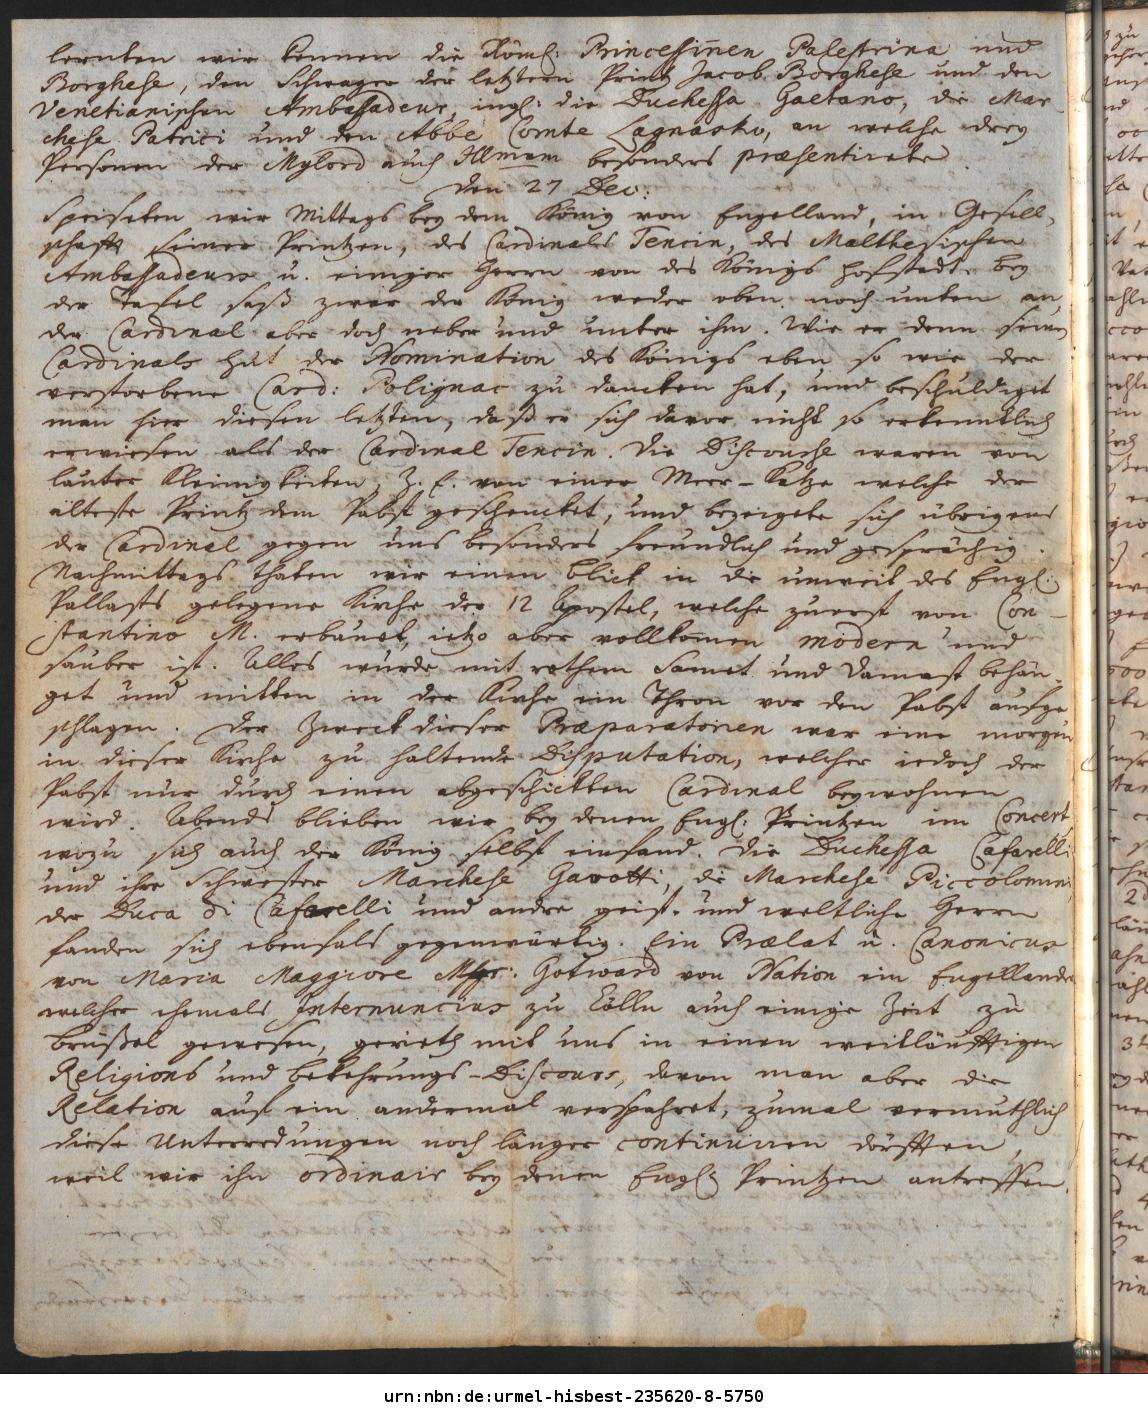 lernten wir kennen die Röml: Princessinnen Palestrina und
Borghese, den Schwager der letztern Printz Jacob Borghese und den
Venetianischen Ambassadeur, ingl: die Duchessa Gaetano, die Mar-
chese Patrici und den Abbe Comte Lagnasko, an welche drey
Personen der Mylord auch Illmum besonders præsentirete.
den 27 Dec:
Speiseten wir Mittags bey dem König von Engelland, in Gesell-
schafft seiner Printzen, des Cardinals Tencin, des Malthesischen
Ambassadeurs u. einiger Herrn von des Königs Hofstadt. bey
der Tafel saß zwar der König weder oben noch unten an,
der Cardinal aber doch neben und unter ihm. Wie er denn seinen
Cardinals Hut der Nomination des Königs eben so wie der
verstorbene Card: Polignac zu dancken hat, und beschuldiget
man hier diesen letzten, daß er sich davor nicht so erkenntlich
erwiesen als der Cardinal Tencin. Die Discourse waren von
lauter Kleinigkeiten, Z. E. von einer Meer-Katze welche der
älteste Printz dem Pabst geschencket, und bezeigete sich übrigens
der Cardinal gegen uns besonders freundlich und gesprächig.
Nachmittags thaten wir einen Blick in die unweit des Engl:
Pallasts gelegene Kirche der 12 Apostel, welche zuerst von Con-
stantino M. erbauet, ietzo aber vollkomen modern und
sauber ist. Alles wurde mit rothem Samet und Damast behän-
get und mitten in der Kirche ein Thron vor den Pabst aufge
schlagen. Der Zweck dieser Præparatorien war eine morgen
in dieser Kirche zu haltende Disputation, welcher iedoch der
Pabst nur durch einen abgeschickten Cardinal beywohnen
wird. Abends blieben wir bey denen Engl: Printzen im Concert,
wozu sich auch der König selbst einfand. Die Duchessa Cafarelli
und ihre Schwester Marchese Gavotti, die Marchese Piccolomini,
der Duca di Cafarelli und andre geist. und weltliche Herrn
fanden sich ebenfals gegenwärtig. Ein Prælat u. Canonicus
von Maria Maggiore Msgr: Gotward von Nation ein Engellander
welcher ehemals Internuncius zu Cölln auch einige Zeit zu
Brüßel gewesen, gerieth mit uns in einen weitläufftigen
Religions und bekehrungs-Discours, davon man aber die
Relation auf ein andermal verspahret, zumal vermuthlich
diese Unterredungen noch länger continuiren dörfften,
weil wir ihn ordinair bey denen Engl: Printzen antreffen.
urn:nbn:de:urmel-hisbest-235620-8-5750